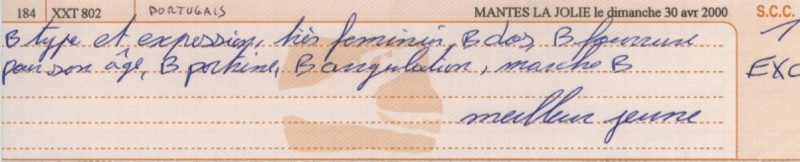 184 XXT 802 PORTUGAIS MANTES LA JOLIE le dimanche 30 avr 2000 S.C.C.
B type et expression, très féminin, B dos, B fourrure
pour son âge, B poitrine, B angulation, marche B
EXC
meilleur jeune